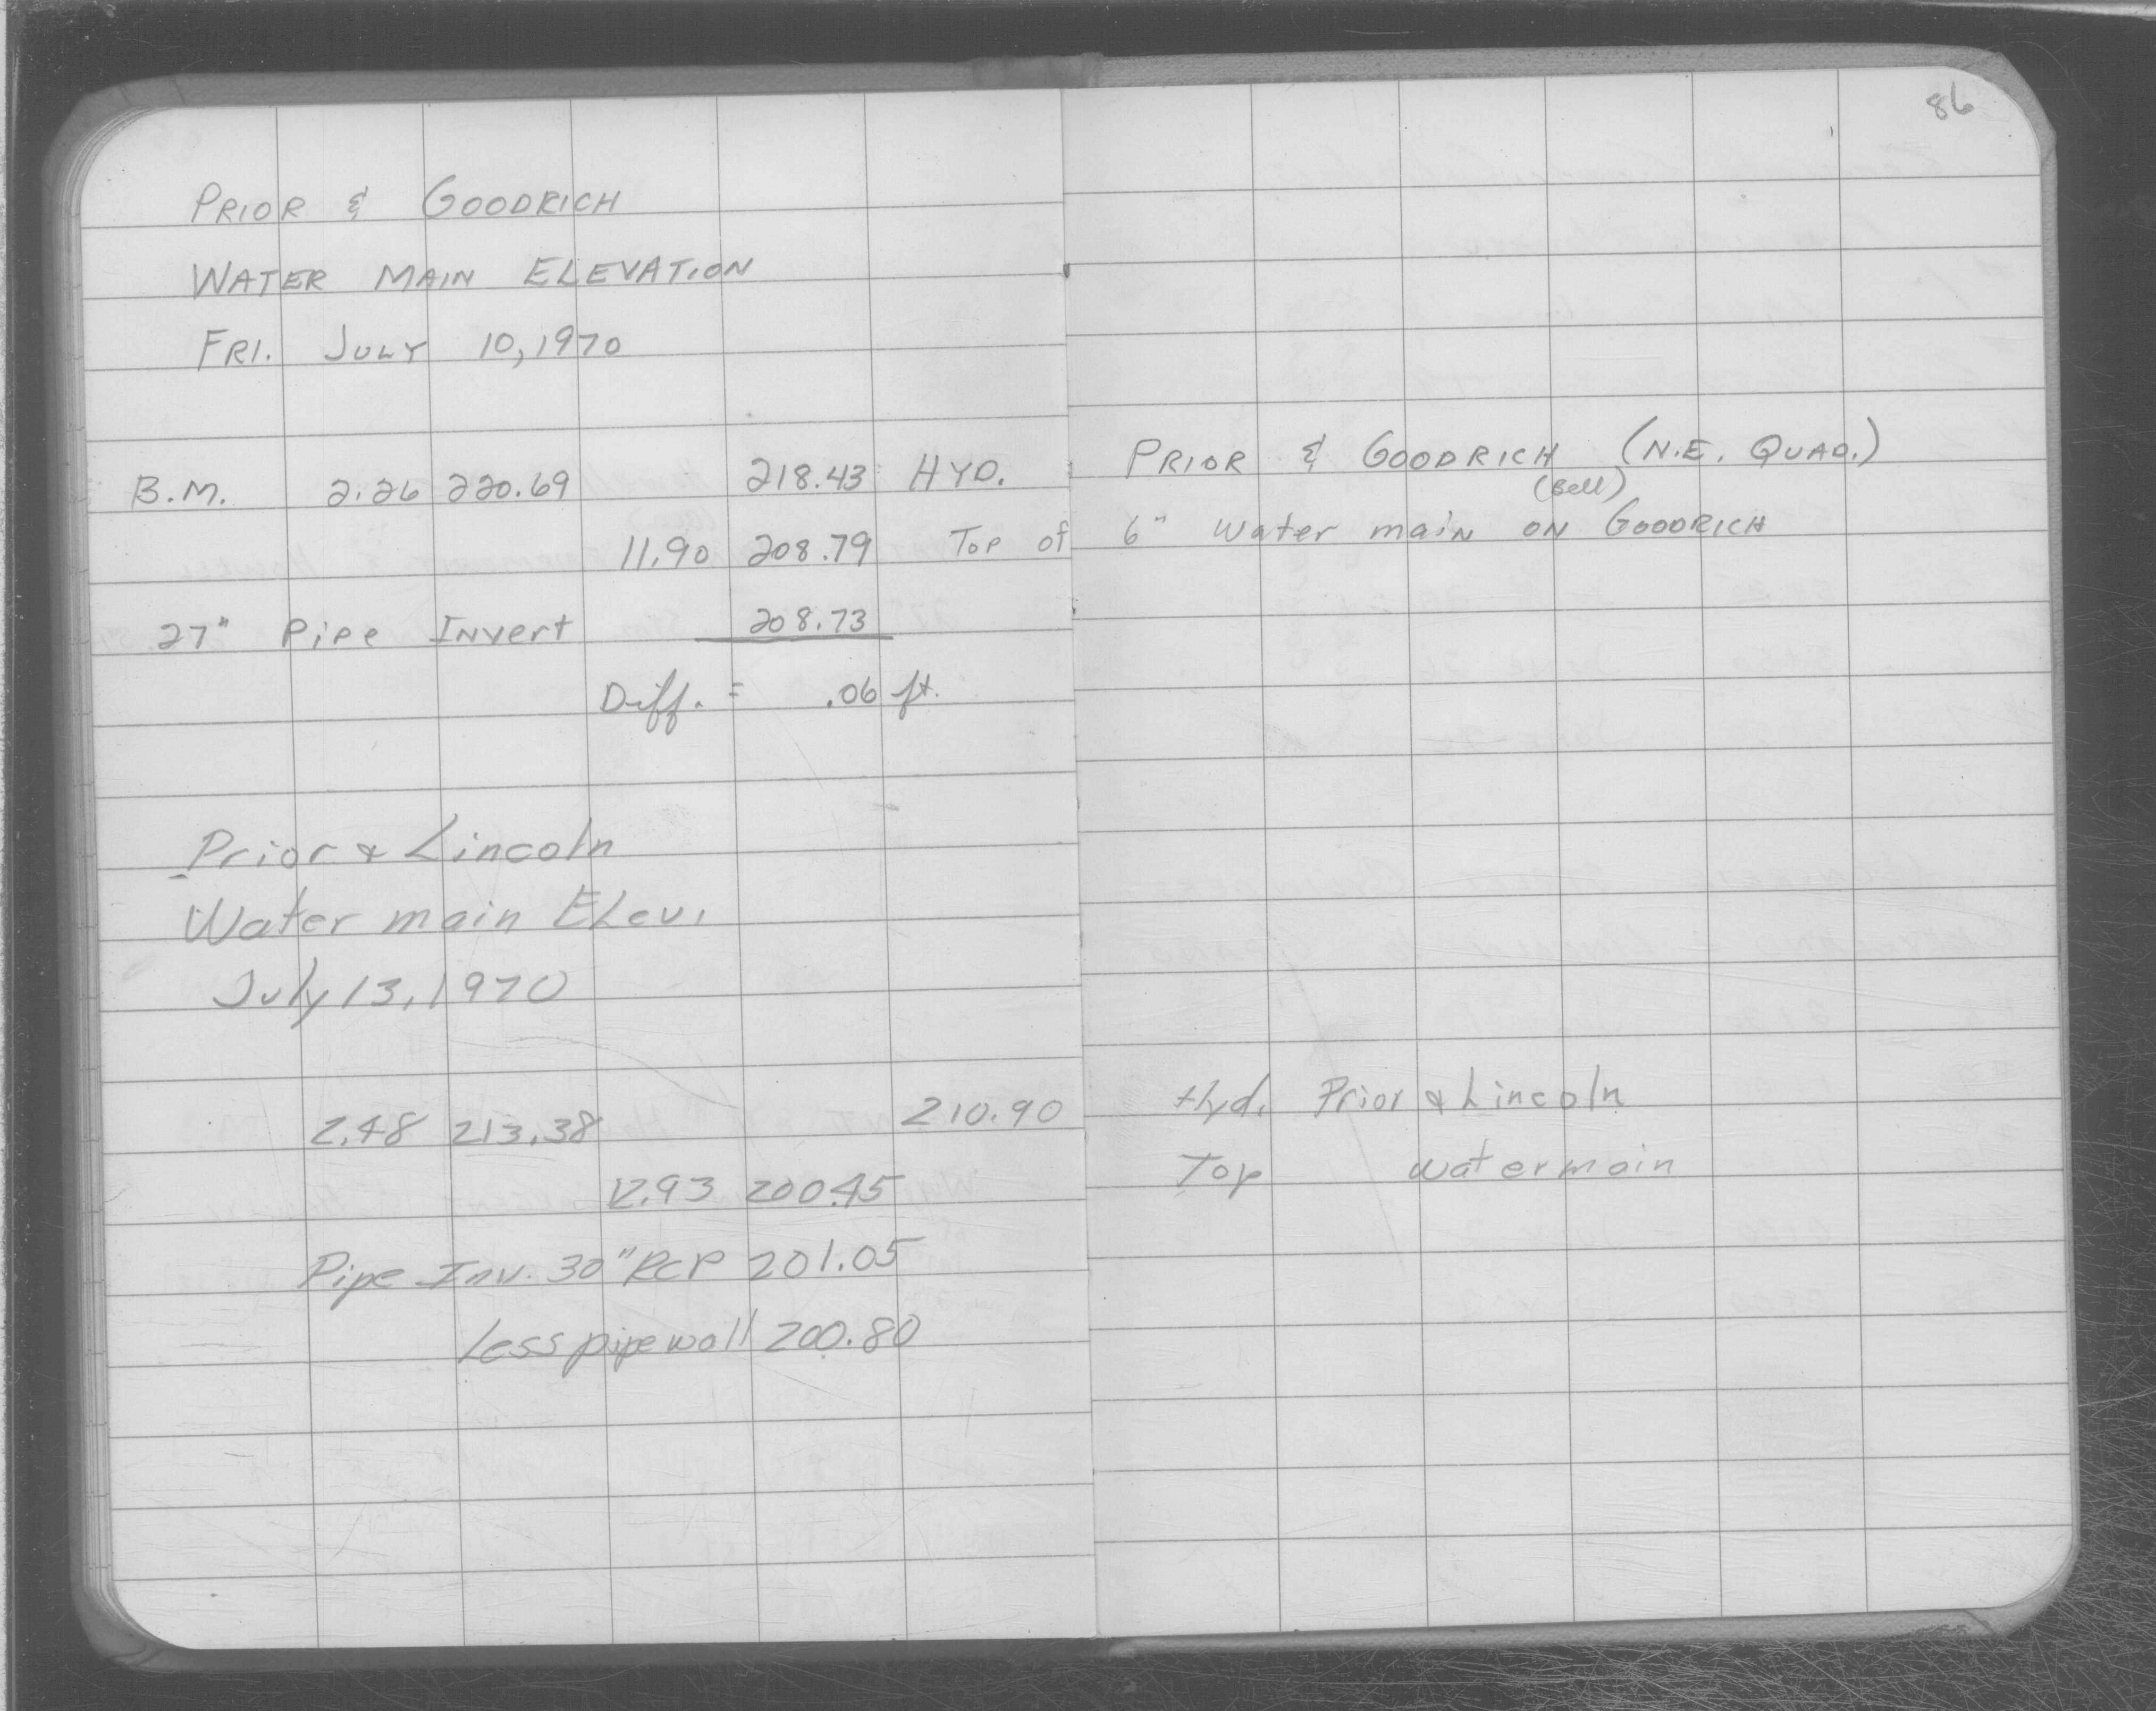 86
PRIOR & GOODRICH
WATER MAIN ELEVATION
FRI. JULY 10, 1970
B.M. 2.26 220.69 218.43 HYD. PRIOR & GOODRICH (N.E. QUAD.)
(Bell)
11.90 208.79 Top of 6" Water main ON GOODRICH
27" Pipe Invert 208.73
Diff. = .06 ft.
Prior & Lincoln
Water main Elev.
July 13, 1970
2.48 213.38 210.90 Hyd. Prior & Lincoln
12.93 200.45 Top watermain
Pipe Inv. 30" RCP 201.05
Less pipe wall 200.80